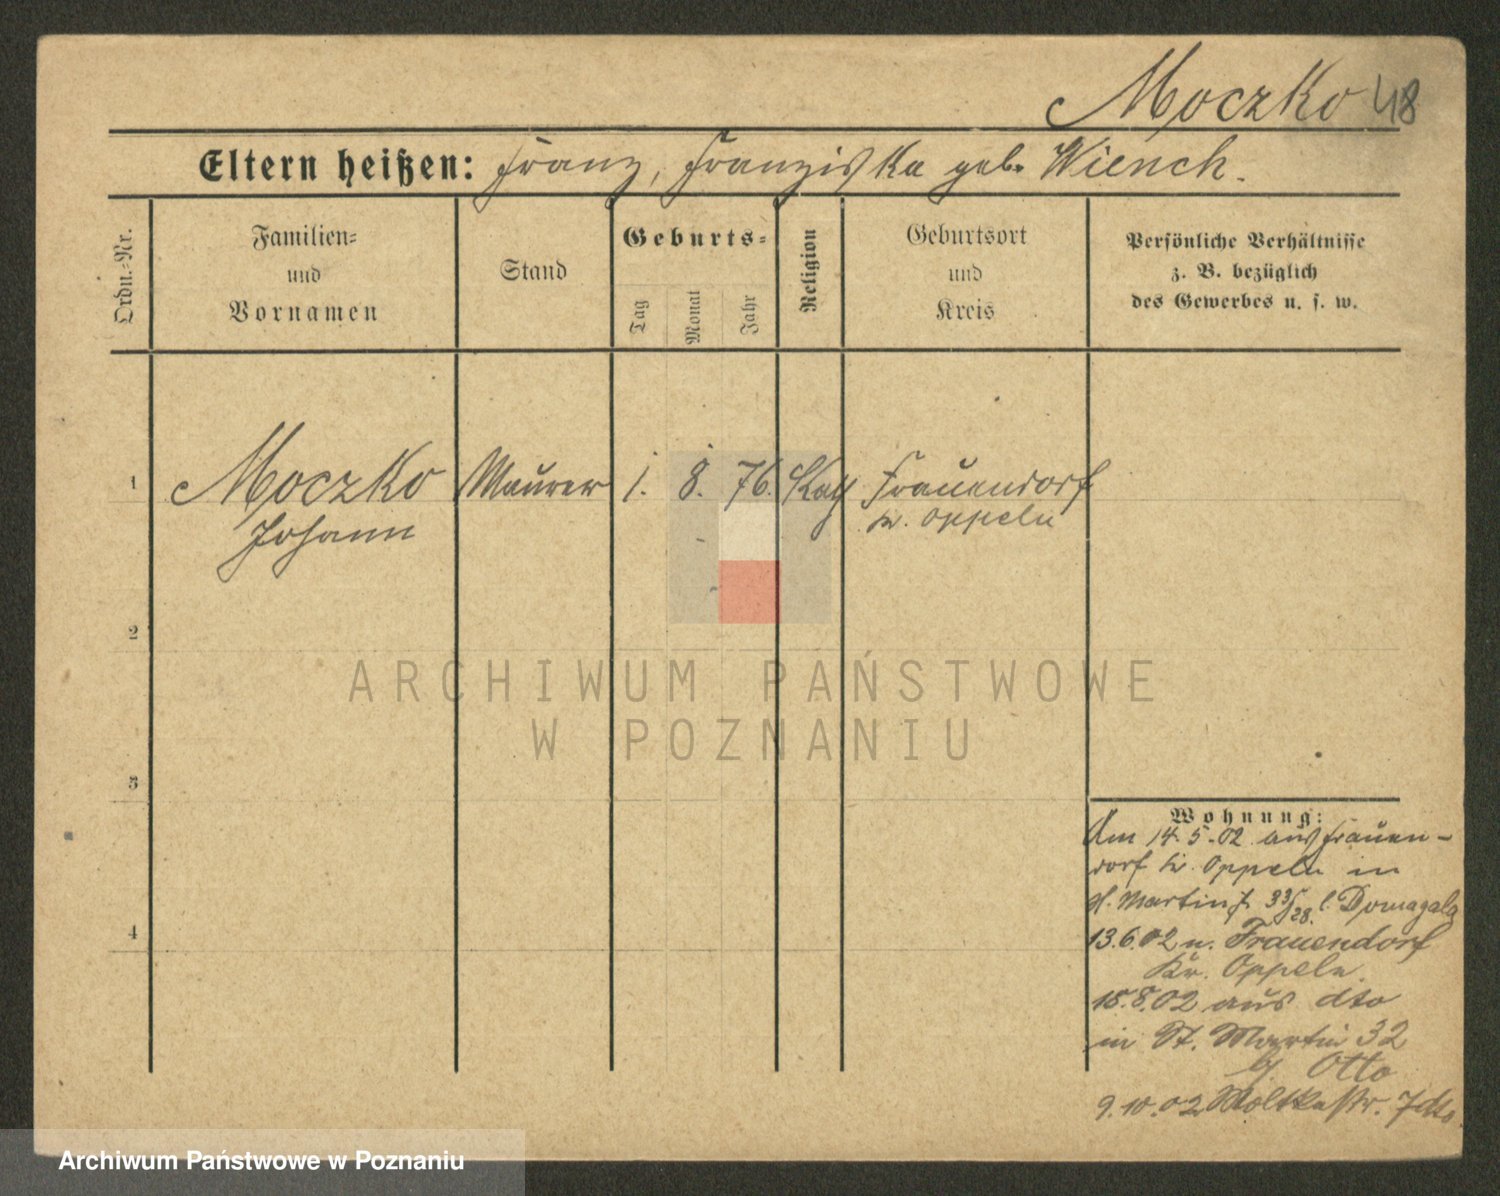 Moczko 48
Eltern heißen: Franz, Franziska geb. Wiench.
Ordn.-Nr.
Familien-
und
Vornamen
Stand
Geburts-
Tag
Monat
Jahr
Religion
Geburtsort
und
Kreis
Persönliche Verhältnisse
z. B. bezüglich
des Gewerbes u. s. w.
1 Moczko Maurer 1. 8. 76. Kath Frauendorf
Johann Kr. Oppeln
2
3
4
Wohnung:
Am 14.5.02 aus Frauen-
dorf Kr. Oppeln in
St. Martinstr 33/28. b. Domagala
13.6.02 n. Frauendorf
Kr. Oppeln
15.8.02 aus dto
in St. Martin 32
b/ Otto
9.10.02 Moltkestr. 7
ARCHIWUM PAŃSTWOWE
W POZNANIU
Archiwum Państwowe w Poznaniu